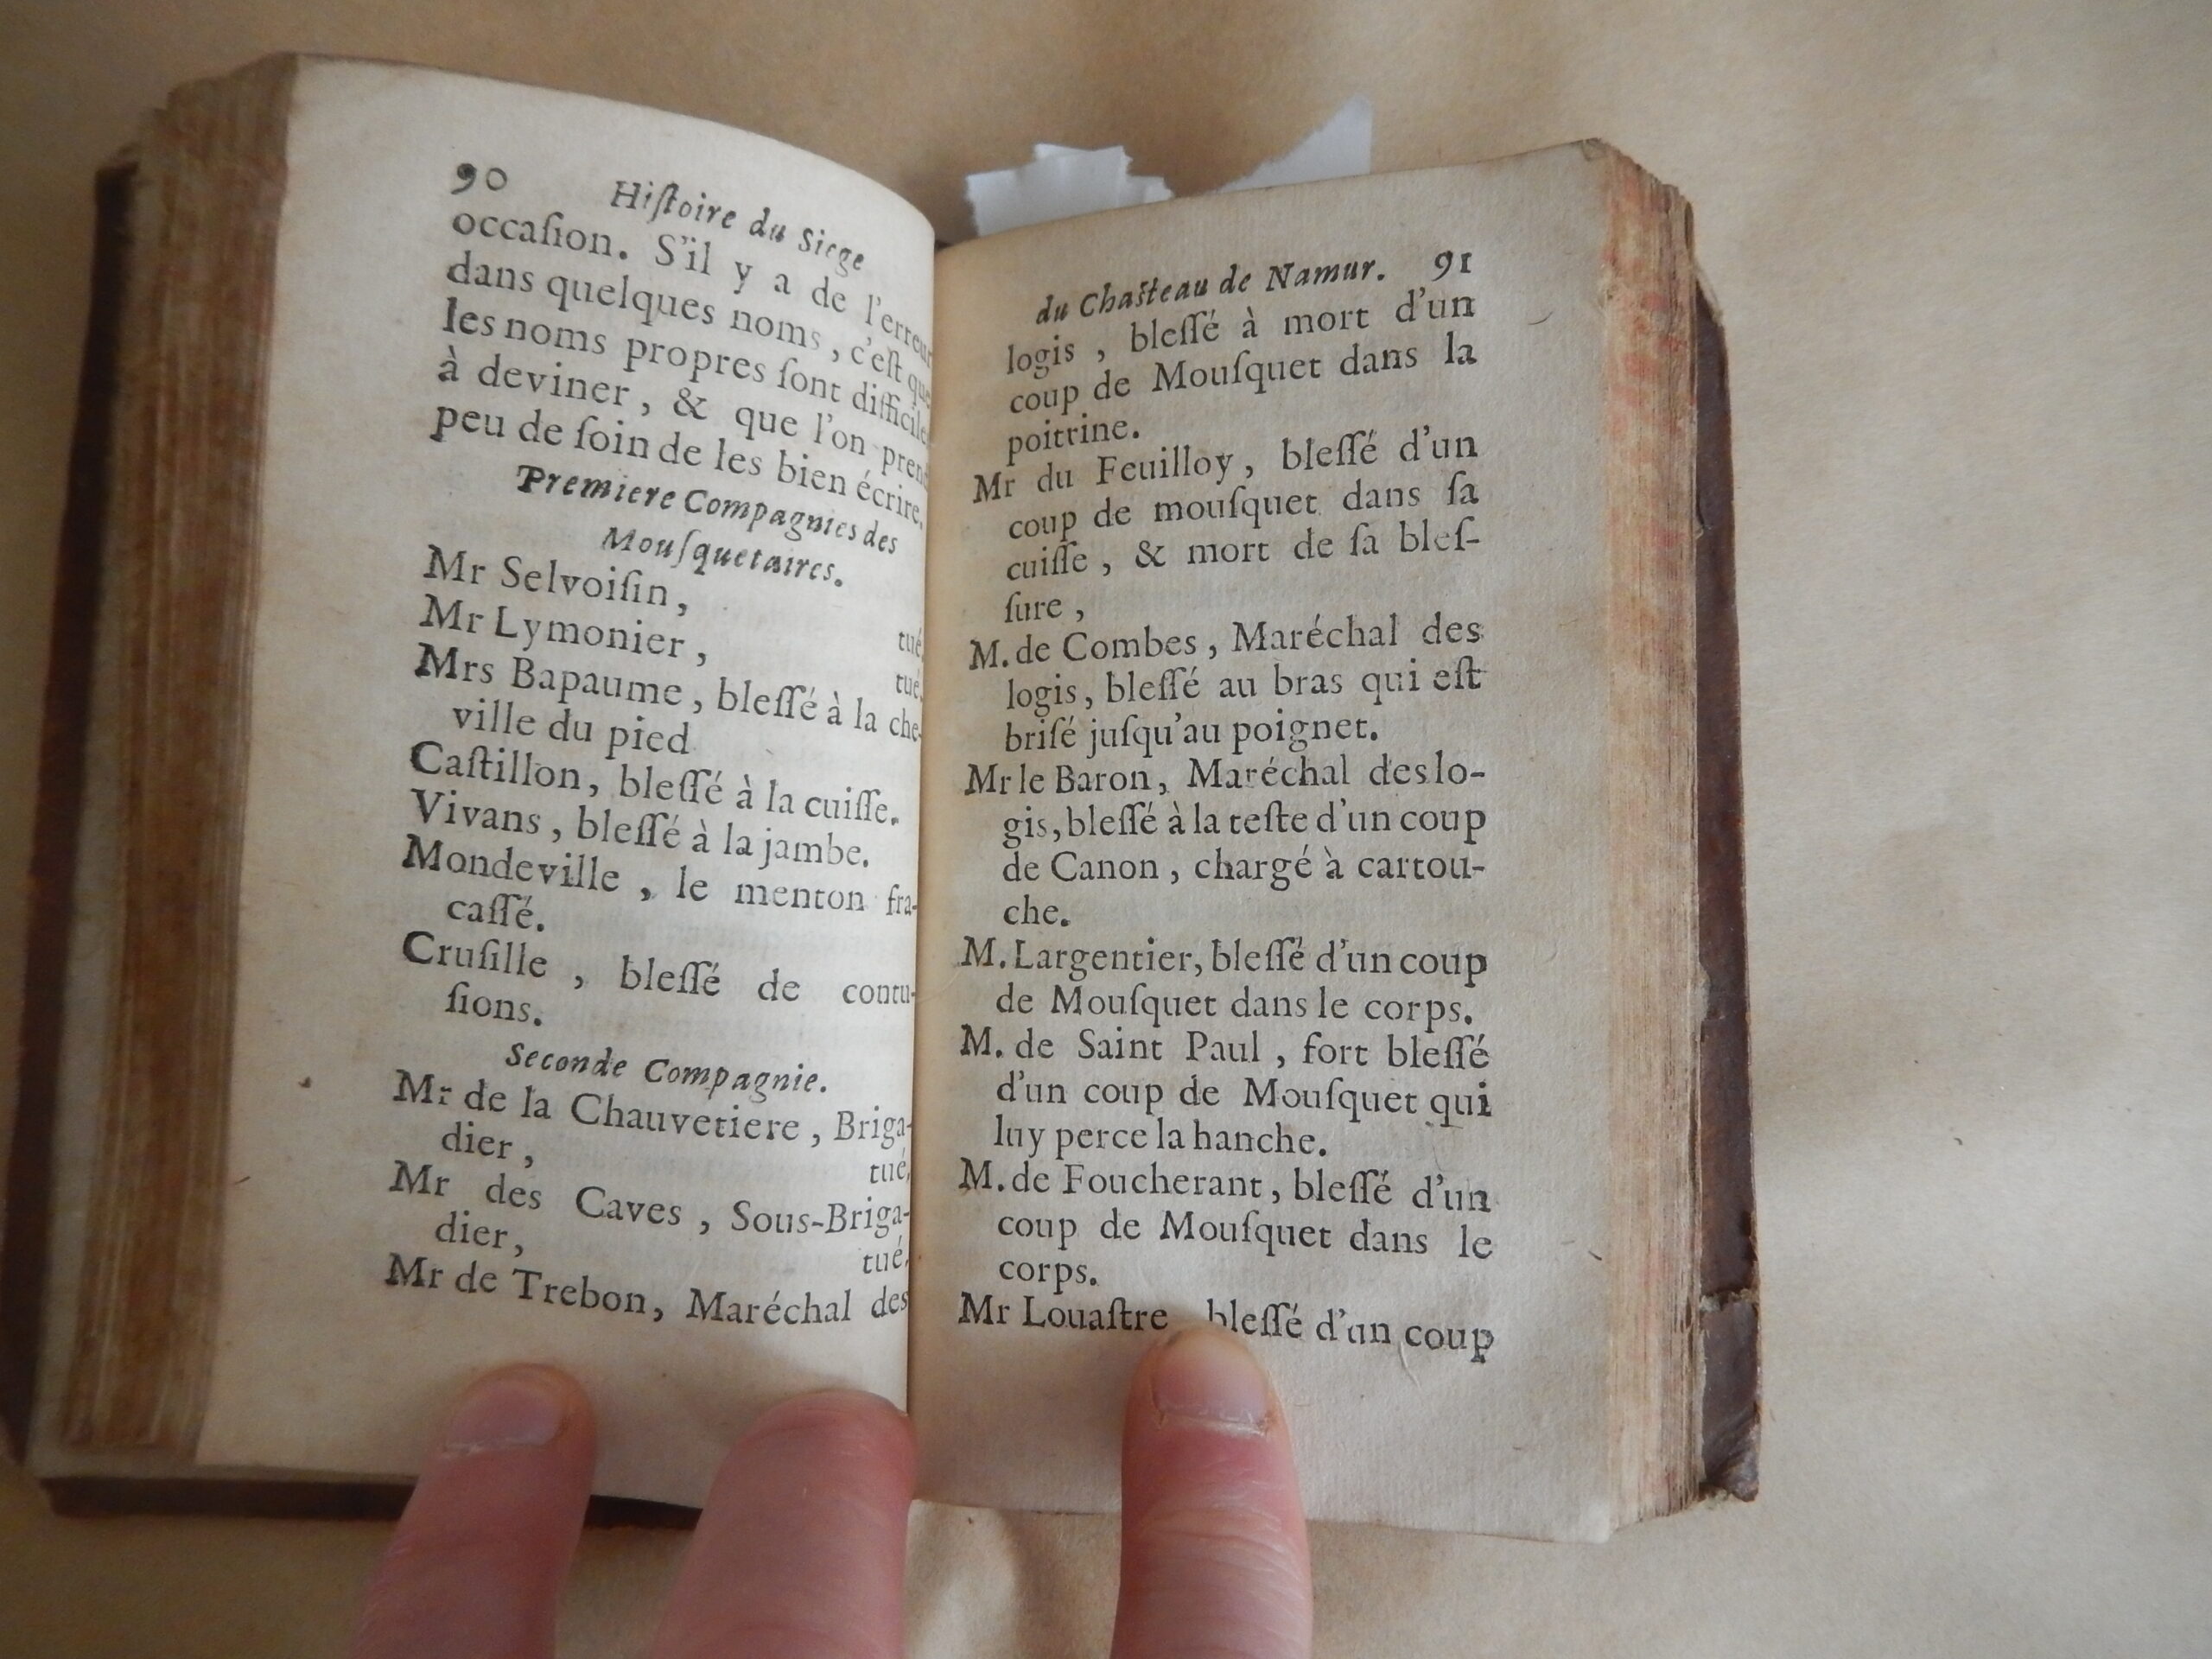 90 Hiſtoire du Siege
occaſion. S'il y a de l'erreur
dans quelques noms, c'eſt que
les noms propres ſont difficiles
à deviner, & que l'on prend
peu de ſoin de les bien écrire.
Premiere Compagnies des
Mouſquetaires.
Mr Selvoiſin, tué,
Mr Lymonier, tué.
Mrs Bapaume, bleſſé à la che-
ville du pied
Caſtillon, bleſſé à la cuiſſe.
Vivans, bleſſé à la jambe.
Mondeville, le menton fra-
caſſé.
Cruſille, bleſſé de contu-
ſions.
Seconde Compagnie.
Mr de la Chauvetiere, Briga-
dier, tué.
Mr des Caves, Sous-Briga-
dier, tué.
Mr de Trebon, Maréchal des
du Chaſteau de Namur. 91
logis, bleſſé à mort d'un
coup de Mouſquet dans la
poitrine.
Mr du Feuilloy, bleſſé d'un
coup de mouſquet dans ſa
cuiſſe, & mort de ſa bleſ-
ſure,
M. de Combes, Maréchal des
logis, bleſſé au bras qui eſt
briſé juſqu'au poignet.
Mr le Baron, Maréchal des lo-
gis, bleſſé à la teſte d'un coup
de Canon, chargé à cartou-
che.
M. Largentier, bleſſé d'un coup
de Mouſquet dans le corps.
M. de Saint Paul, fort bleſſé
d'un coup de Mouſquet qui
luy perce la hanche.
M. de Foucherant, bleſſé d'un
coup de Mouſquet dans le
corps.
Mr Louaſtre bleſſé d'un coup